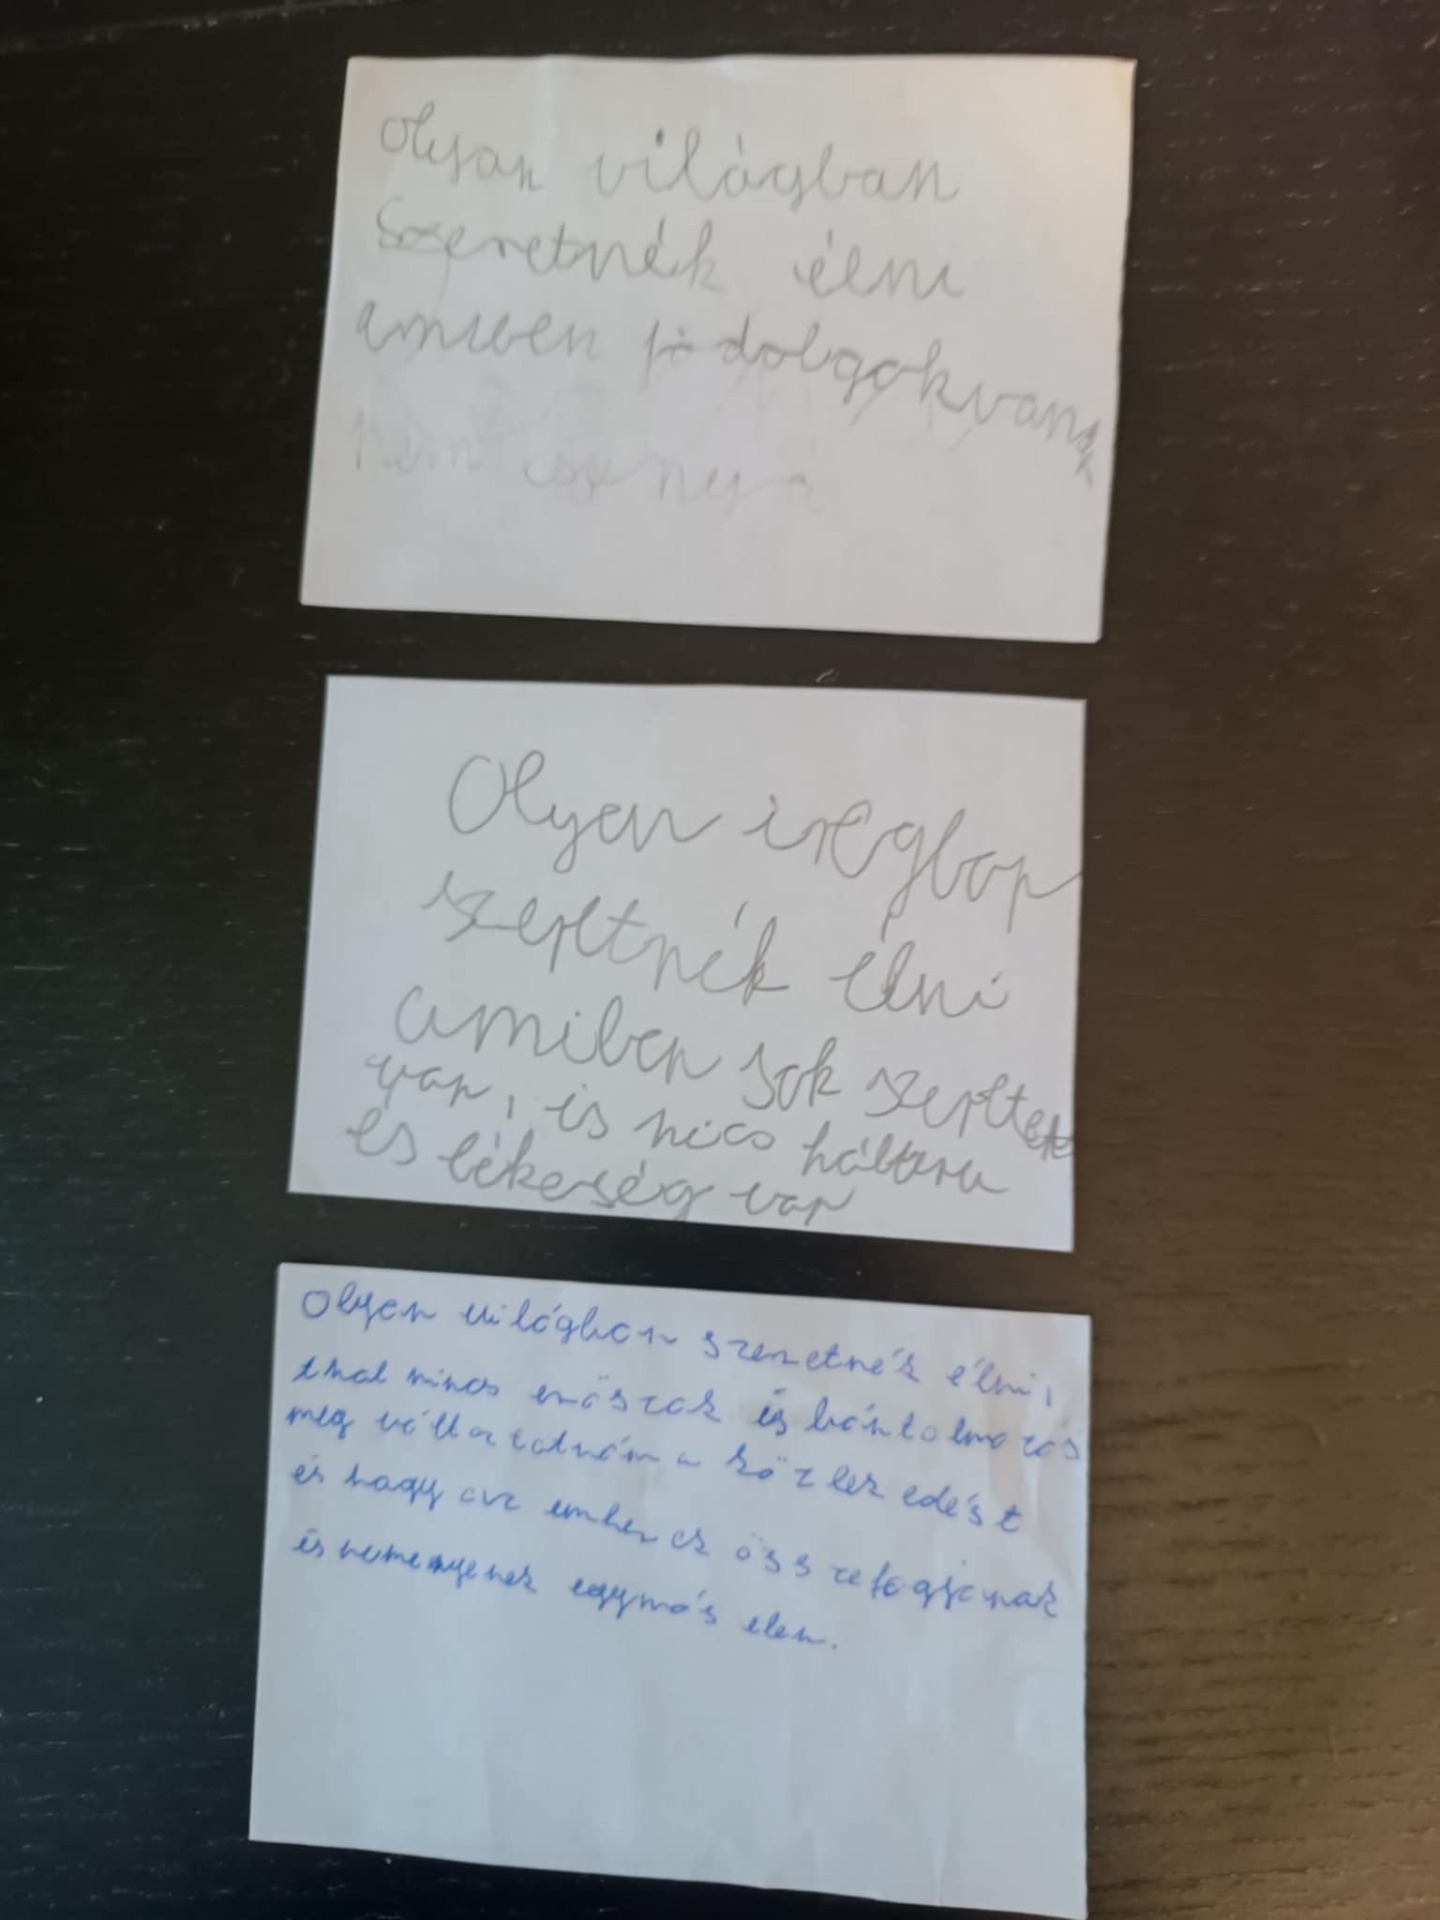 Olyan világban
Szeretnék élni
amiben jó dolgok vannak
nem csúnya
Olyen irégban
szeretnék élni
amiben sok szeretet
van, és nics háború
és békeség van
Olyan világban szeretnék élni,
ahol nincs erőszak és bántalmazás
meg változtatnám a közlekedést
és hogy az emberek összefogjanak
és nemenyenek egymás elen.